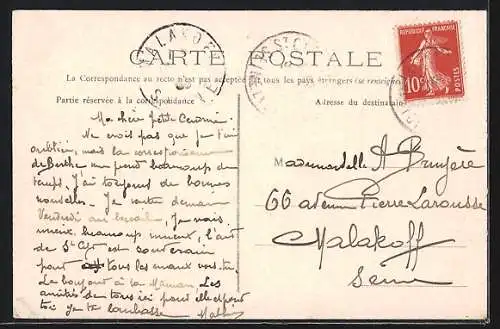 CARTE POSTALE
La Correspondance au recto n'est pas acceptée tous les pays étrangers (se renseigner
Partie réservée à la correspondance
Adresse du destinataire
REPUBLIQUE FRANÇAISE
10
POSTES
MALAKOFF
Ma chère petite
Ne crois pas que je t'ai
oubliée, mais la correspondance
de Berthe me prend beaucoup de
temps. J'ai toujours de bonnes
nouvelles. Je rentre demain
Vendredi au travail. Je vais
mieux, beaucoup mieux, l'air
de St est souverain
pour tous les maux
Le bonjour à ta Maman. Les
amitiés de tous ici pour elle et pour
toi je t'embrasse
Mademoiselle A Bruyère
66 avenue Pierre Larousse
Malakoff
Seine